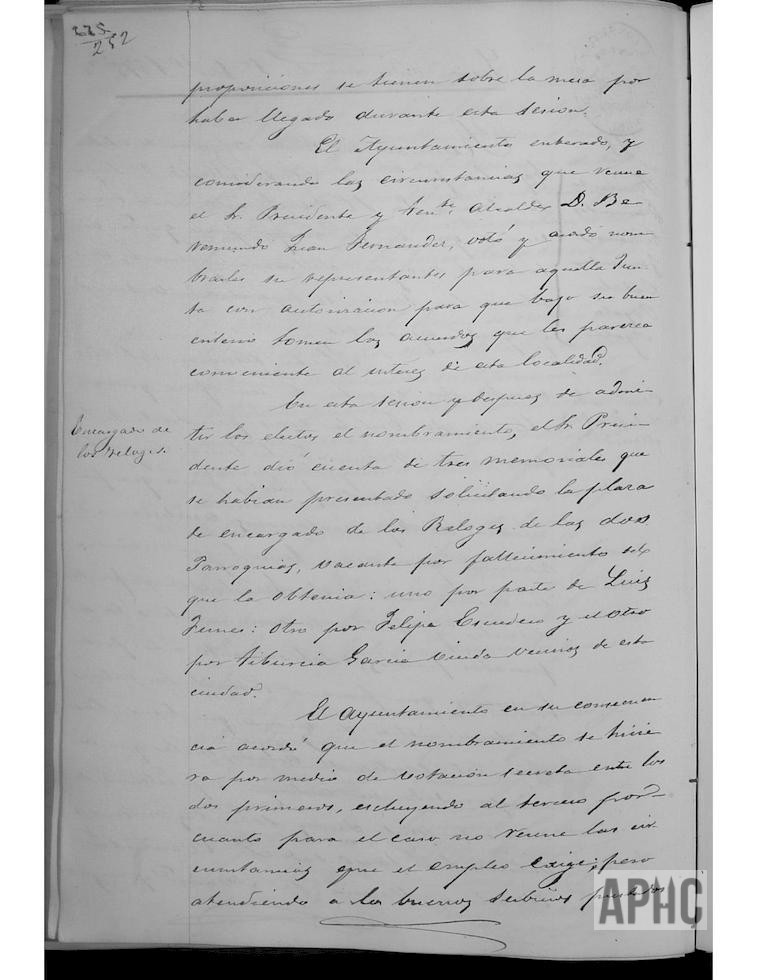 225
252
proposiciones se tienen sobre la mesa por
haber llegado durante esta sesion.
El Ayuntamiento enterado, y
considerando las circunstancias que reune
el Sr. Presidente y Tente. alcalde D. Be-
remundo Juan Fernandez, votó y acordó nom-
brarles sus representantes para aquella Jun-
ta con autorizacion para que bajo su buen
criterio tomen los acuerdos que les parezca
conveniente al interes de esta localidad.
Encargado de
los relojes.
En esta sesion y despues de admi-
tir los electos el nombramiento, el Sr. Presi-
dente dió cuenta de tres memoriales que
se habian presentado solicitando la plaza
de encargado de los Reloges de las dos
Parroquias, vacante por fallecimiento del
que la obtenia: uno por parte de Luis
otro por Felipe Escudero y el otro
por Tiburcia Garcia viuda vecinos de esta
ciudad.
El Ayuntamiento en su consecuen
cia acordó que el nombramiento se hicie
ra por medio de votacion secreta entre los
dos primeros, escluyendo al tercero por
cuanto para el caso no reune las cir-
cunstancias que el empleo exige; pero
atendiendo a los buenos servicios prestados
APHC